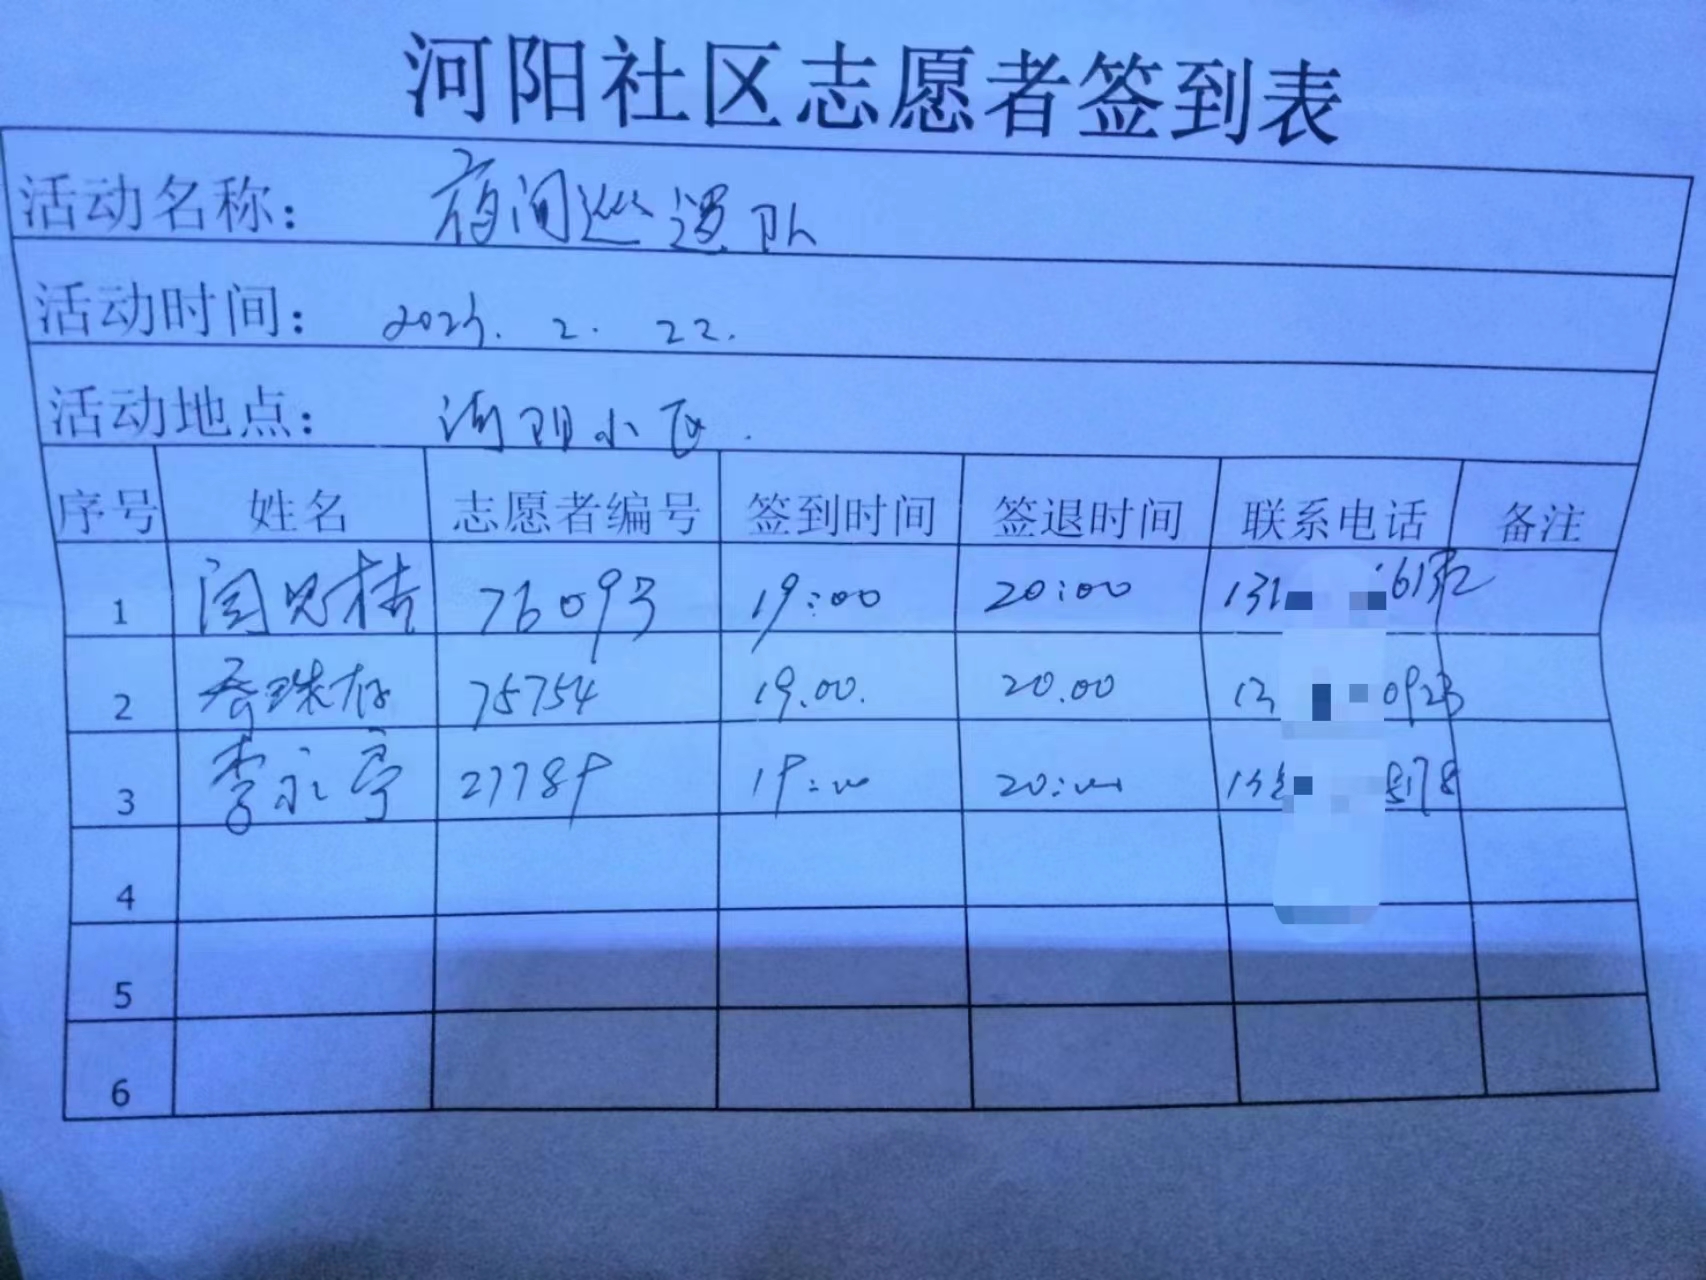 河阳社区志愿者签到表
活动名称： 夜间巡逻队
活动时间： 2025. 2. 22.
活动地点： 河阳小区.
序号 姓名 志愿者编号 签到时间 签退时间 联系电话 备注
1 76093 19:00 20:00 131
2 75754 19.00. 20.00 0923
3 李永亭 27789 19:00 20:00
4
5
6